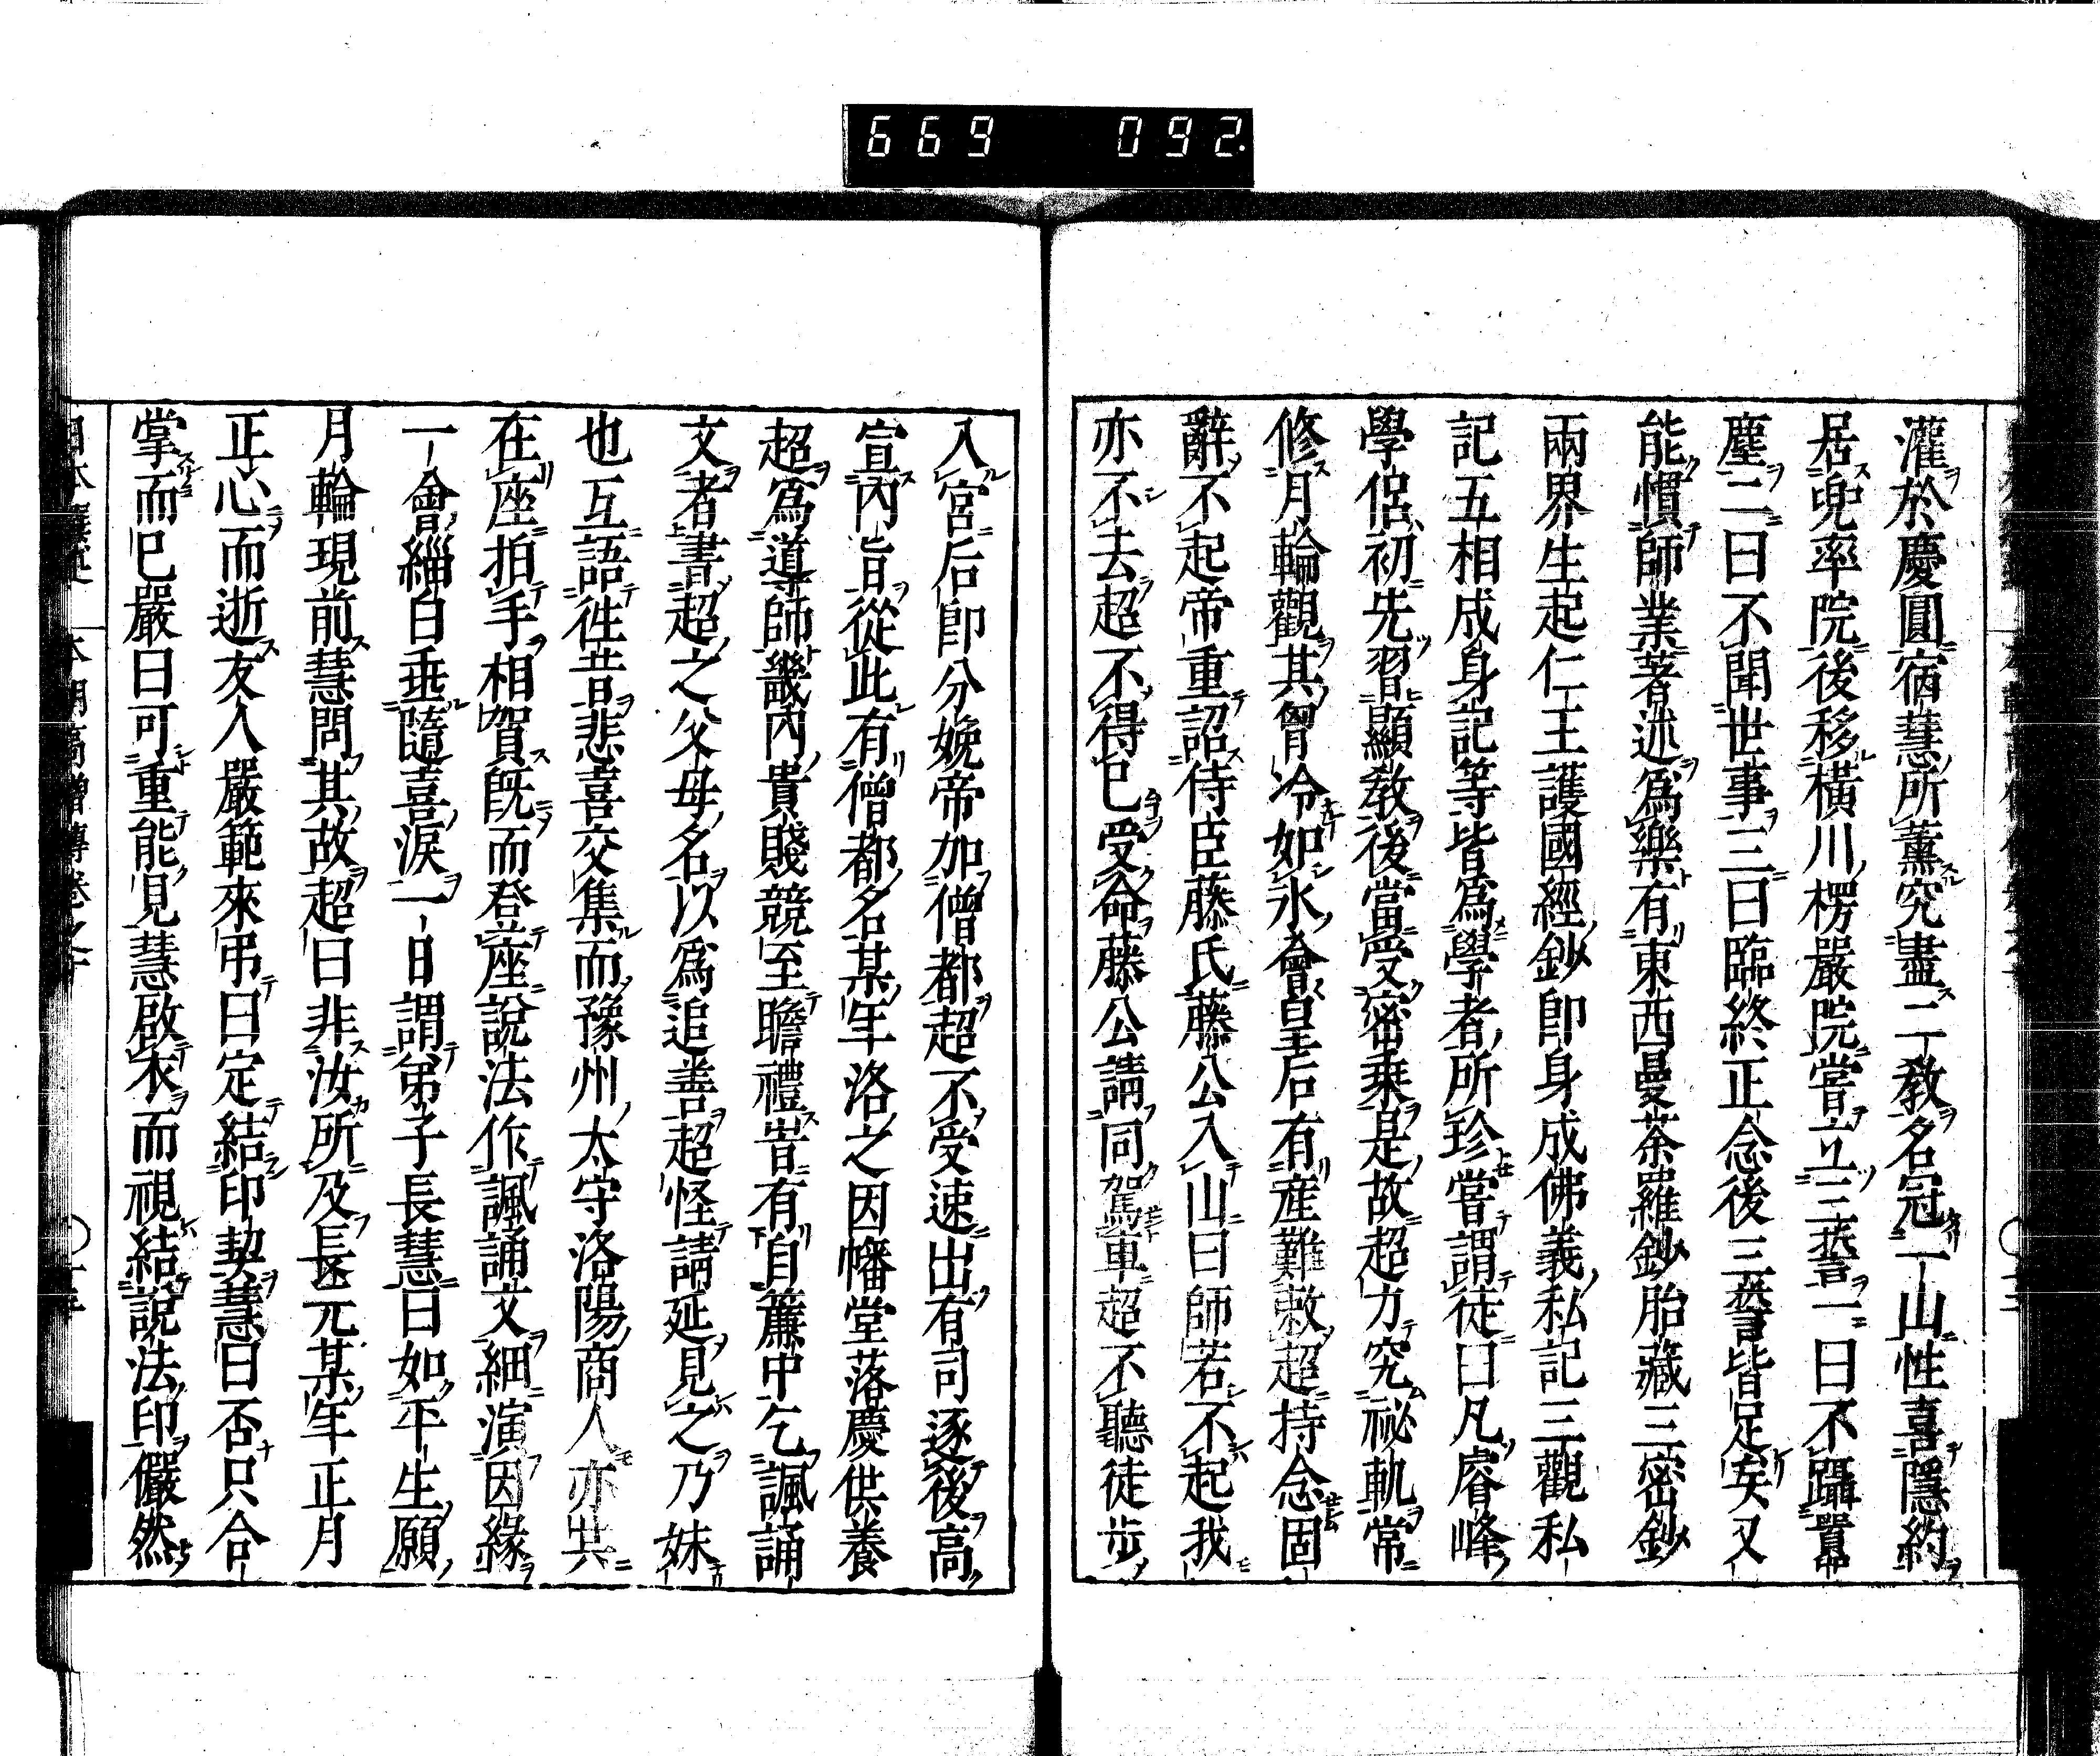 669 092.
灌於慶圓宿慧所薰究盡二教名冠一山性喜隱約
居兜率院後移橫川楞嚴院嘗立三誓一曰不躡囂
塵二曰不聞世事三曰臨終正念後三誓皆足矣又
能慣師業著述爲樂有東西曼荼羅鈔胎藏三密鈔
兩界生起仁王護國經鈔卽身成佛義私記三觀私
記五相成身記等皆爲學者所珍嘗謂徒曰凡睿峰
學侶初先習顯教後當受密乘是故超力究祕軌常
修月輪觀其胷冷如氷會皇后有產難敕超持念固
辭不起帝重詔侍臣藤氏藤公入山曰師若不起我
亦不去超不得已受命藤公請同駕車超不聽徒步
入宮后卽分娩帝加僧都超不受速出有司逐後高
宣內旨從此有僧都名某年洛之因幡堂落慶供養
超爲導師畿內貴賤競至瞻禮旹有自簾中乞諷誦
文者書超之父母名以爲追善超怪請延見之乃妹
也互語徃昔悲喜交集而豫州太守洛陽商人亦共
在座拍手相賀旣而登座說法作諷誦文細演因緣
一會緇白垂隨喜淚一日謂弟子長慧曰如平生願
月輪現前慧問其故超曰非汝所及長元某年正月
正心而逝友人嚴範來弔曰定結印契慧曰否只合
掌而已嚴曰可重能見慧啟衣而視結說法印儼然
本朝高僧傳卷之